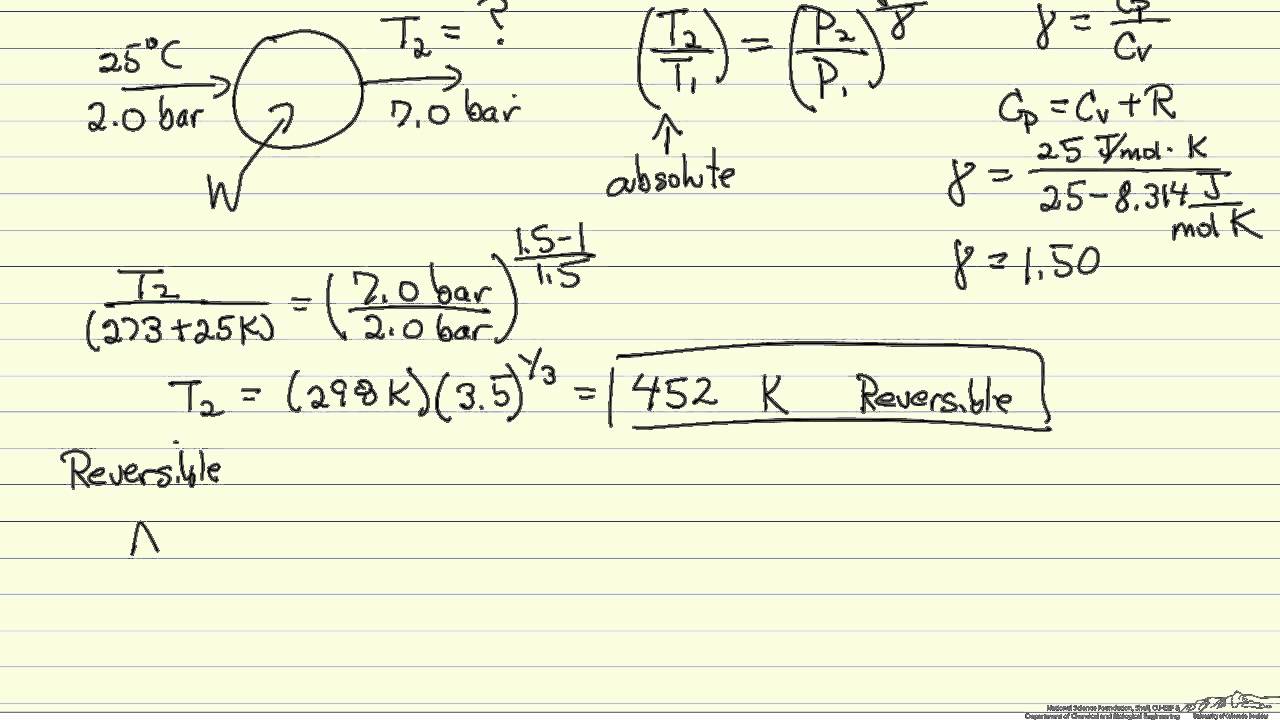 25°C
2.0 bar
T₂ = ?
7.0 bar
W
(T₂/T₁) = (P₂/P₁)
γ
absolute
γ = Cp/Cv
Cp = Cv + R
γ = 25 J/mol·K / 25 - 8.314 J/mol K
γ = 1.50
T₂/(273+25K) = (7.0 bar/2.0 bar)^(1.5-1/1.5)
T₂ = (298 K)(3.5)^1/3 = 452 K Reversible
Reversible
National Science Foundation, Shell, CU-EEF &
Department of Chemical and Biological Engineering University of Colorado Boulder